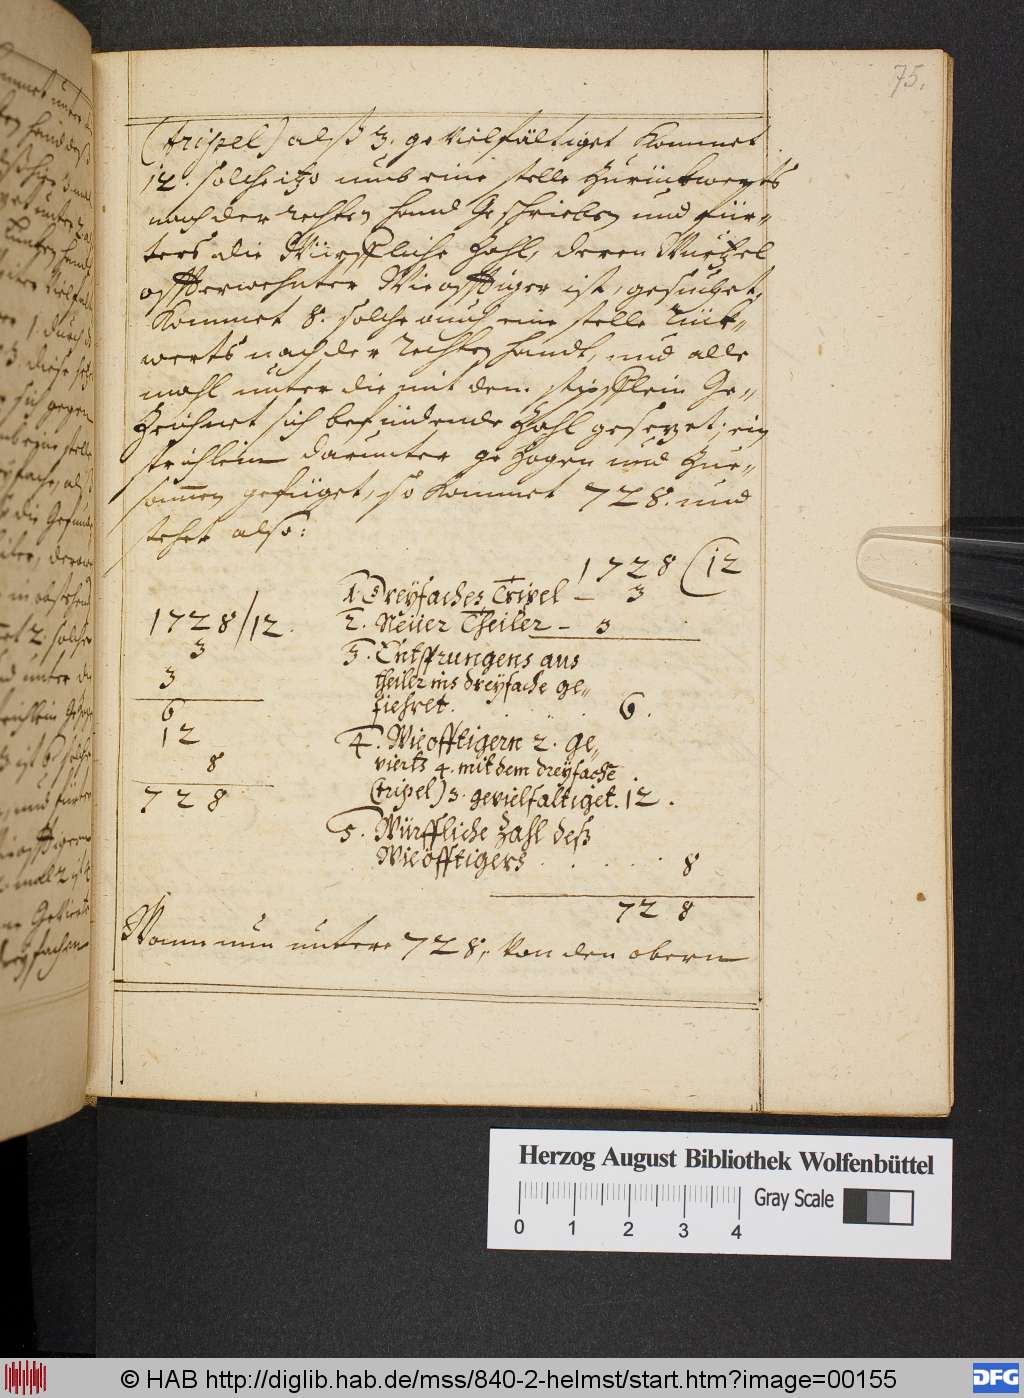 75.
(tripel) alß 3. gevielfältiget kommet
12. solche itzo umb eine stelle zurückwerts
nach der rechten hand geschrieben und für-
ters die Würffliche Zahl, deren Wurtzel
offterwehnter Wieofftiger ist, gesuchet,
kommet 8. solche auch eine stelle rück-
werts nach der rechten handt, und alle
mahl unter die mit dem stipfflein Ge-
zeichnet sich befindende Zahl gesetzet; ein
strichlein darunter gezogen und zue-
sammen gefüget, so kommet 728. und
stehet also:
1728 (12
1. Dreyfaches Tripel - 3
2. Neuer Theiler - 3
3. Entsprungens aus
theiler ins dreyfache ge-
fiehret. 6.
4. Wieofftigern 2. ge-
vierts 4. mit dem dreyfache
(tripel) 3. gevielfaltiget. 12.
5. Würffliche Zahl deß
Wieofftigers 8
728
1728/12.
3
3
6
12
8
728
Wann nun untere 728, von den obern
Herzog August Bibliothek Wolfenbüttel
Gray Scale
0 1 2 3 4
© HAB http://diglib.hab.de/mss/840-2-helmst/start.htm?image=00155
DFG